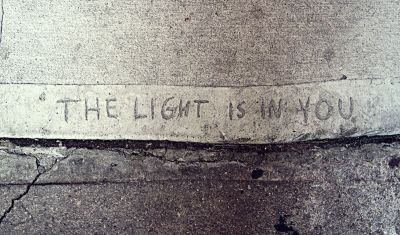 THE LIGHT IS IN YOU